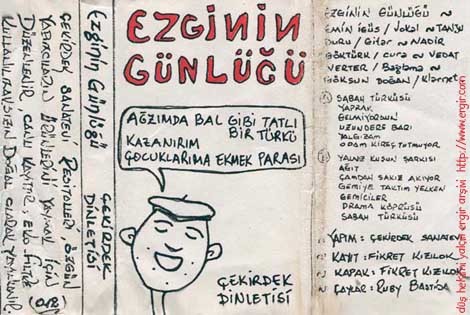 ÇEKİRDEK SANATEVİ RESİTALLERİ ÖZGÜN
YAPIMCILARIN ÜRÜNLERİNİ YAYMAK İÇİN
DÜZENLENİR, CANLI KAYITTIR, EKO-FİLTRE
KULLANILMAKSIZIN DOĞAL OLARAK YAYIMLANIR.
Ezginin Günlüğü
ÇEKİRDEK
DİNLETİSİ
EZGİNİN
GÜNLÜĞÜ
AĞZIMDA BAL GİBİ TATLI
BİR TÜRKÜ
KAZANIRIM
ÇOCUKLARIMA EKMEK PARASI
ÇEKİRDEK
DİNLETİSİ
EZGİNİN GÜNLÜĞÜ ~
EMİN İGÜS / Vokal ~ TANJU
DURU / Gitar ~ NADİR
GÖKTÜRK / cura ~ VEDAT
VERTER / Bağlama ~
GÖKSUN DOĞAN / Klarnet
SABAH TÜRKÜSÜ
YAPRAK
GELMİYORSUN
UZUNDERE BARI
YALGIZAM
ODAM KİREÇ TUTMUYOR
YALNIZ KUŞUN ŞARKISI
AĞIT
ÇAMDAN SAKIZ AKIYOR
GEMİYE TAKTIM YELKEN
GEMİCİLER
DRAMA KÖPRÜSÜ
SABAH TÜRKÜSÜ
YAPIM: ÇEKİRDEK SANATEV
KAYIT: FİKRET KIZILOK
KAPAK: FİKRET KIZILOK
ÇAYLAR: RUBY BASTIDA
düş hekimi yalçın ergir arşivi http://www.ergir.com